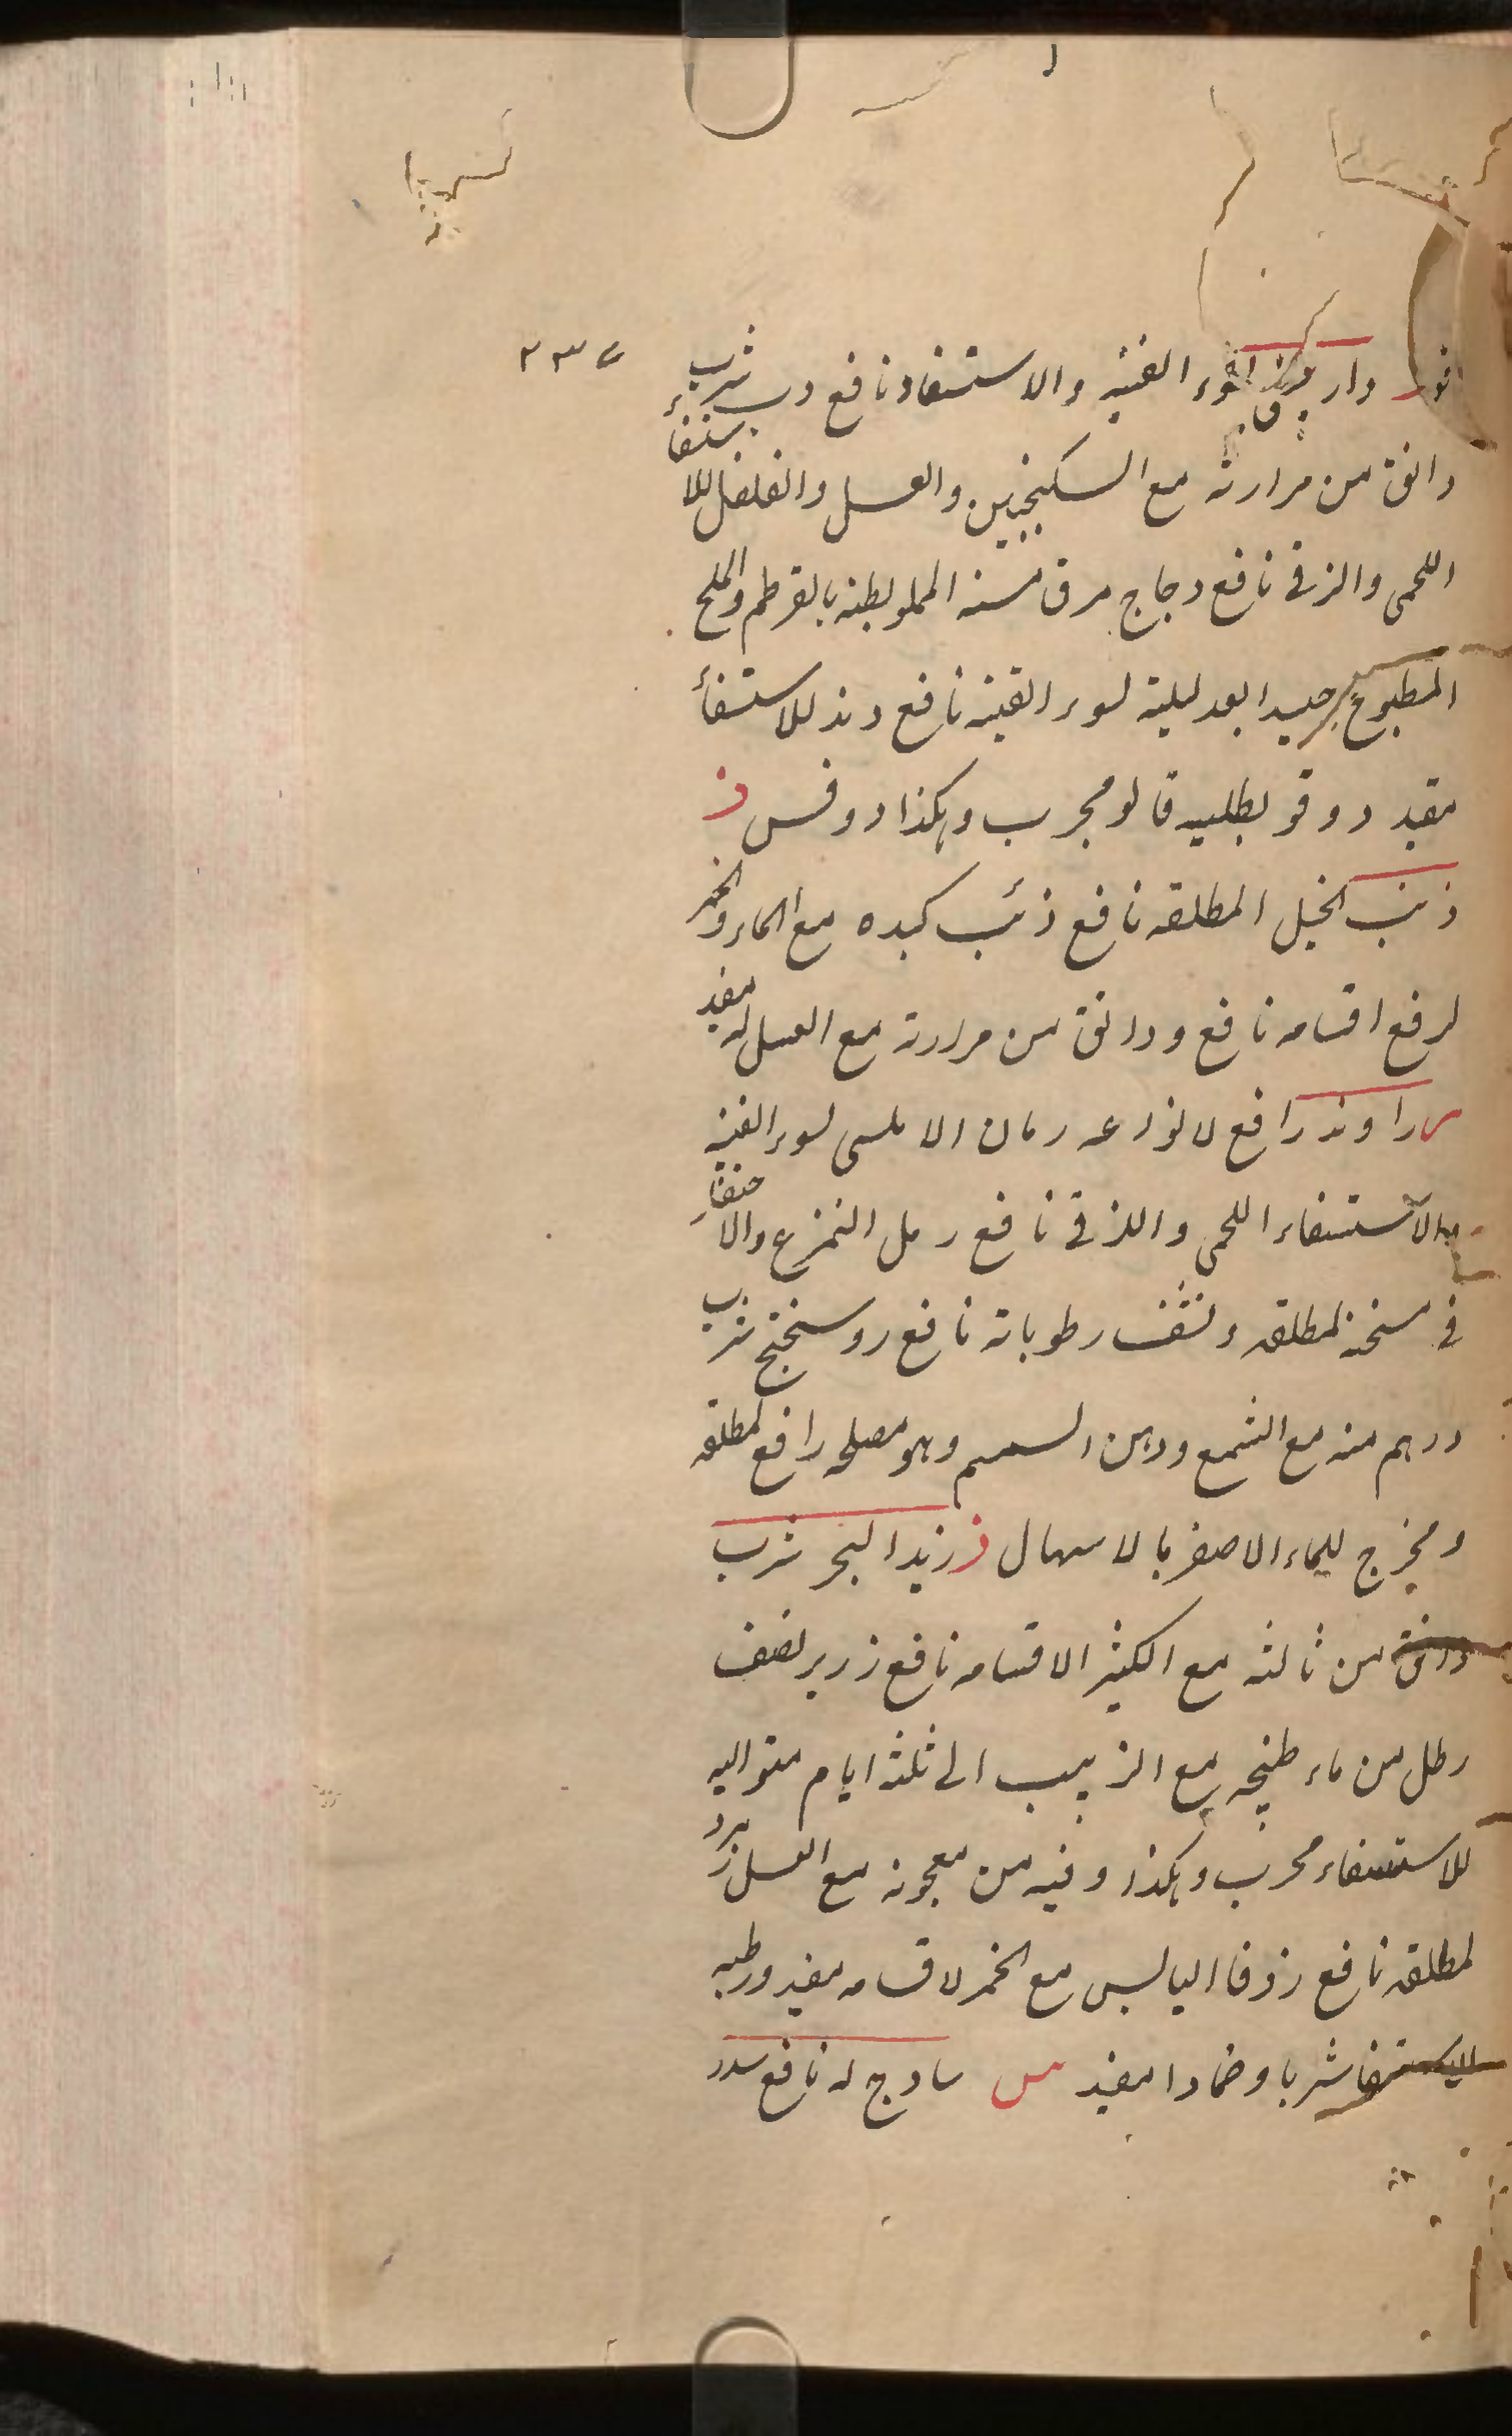 ٢٣٧
دار سوء القنيه والاستسقاء نافع دب شرب
دانق من مرارته مع السكنجبين والعسل والفلفل للاستسقاء
اللحمى والزقى نافع دجاج مرق مسنه المملو بطنه بالقرطم والملح
المطبوخ جيدا بعد ليلته لسوء القنيه نافع دند للاستسقأ
مفيد دوقو بطليه قالو مجرب وهكذا دوفس ذ
ذنب الخيل المطلقه نافع ذئب كبده مع الماء والخمر
لرفع اقسامه نافع ودانق من مرارته مع العسل له مفيد
ر راوند رافع لانواعه رمان الاملسى لسوء القنيه
والاستسقاء اللحمى والزقى نافع رمل التمزع والاحتقان
فى سخنه لمطلقه ونشف رطوباته نافع روسختج شرب
درهم منه مع الشمع ودهن السمسم وهو مصلحه رافع لمطلقه
ومخرج للماء الاصفر بالاسهال ز زبد البحر شرب
دانق من ثالثه مع الكثير الاقسامه نافع زرير نصف
رطل من ماء طبخه مع الزبيب الى ثلثه ايام متواليه
للاستسقاء مجرب وهكذا وفيه من معجونه مع العسل
لمطلقه نافع زوفا اليابس مع الخمر لاقسامه مفيد ورطبه
للاستسقا شربا وضمادا مفيد س سادج له نافع سدر